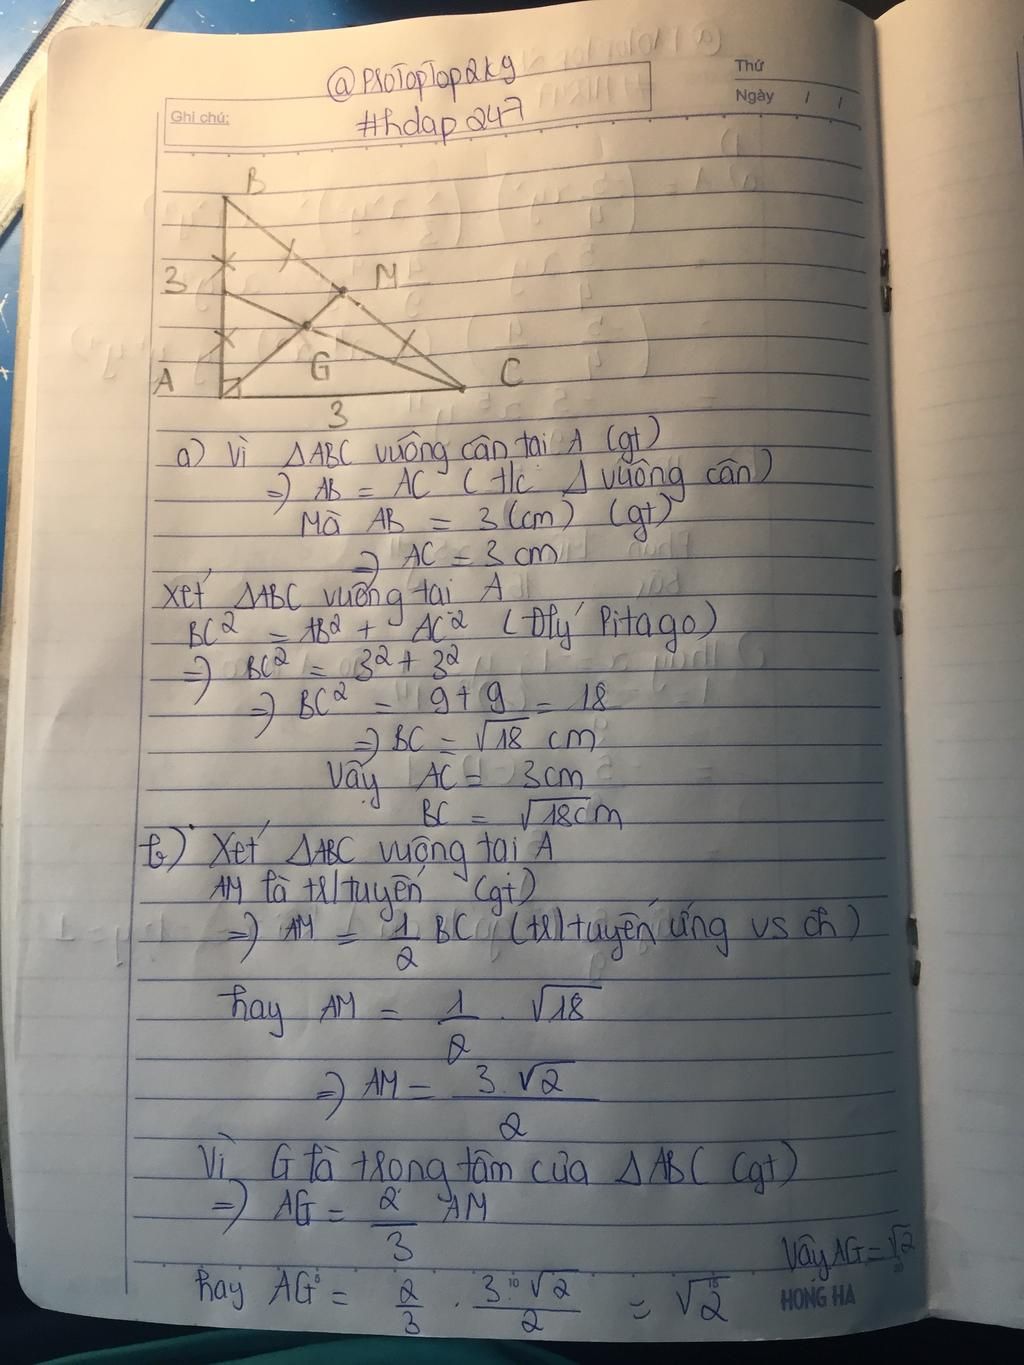 @ProTopTop2k9
#hdap247
Ghi chú:
Thứ
Ngày / /
B
3
M
G
A
C
3
a) Vì ΔABC vuông cân tại A (gt)
=> AB = AC (t/c Δ vuông cân)
Mà AB = 3(cm) (gt)
=> AC = 3 cm
Xét ΔABC vuông tại A
BC² = AB² + AC² (Đlý Pitago)
=> BC² = 3² + 3²
=> BC² = 9 + 9 = 18
=> BC = √18 cm
Vậy AC = 3cm
BC = √18cm
b) Xét ΔABC vuông tại A
AM là tr/tuyến (gt)
=> AM = 1/2 BC (tr/tuyến ứng vs ch)
hay AM = 1/2 . √18
=> AM = 3.√2/2
Vì G là trọng tâm của ΔABC (gt)
=> AG = 2/3 AM
hay AG = 2/3 . 3.√2/2 = √2
Vậy AG = √2
HONG HA